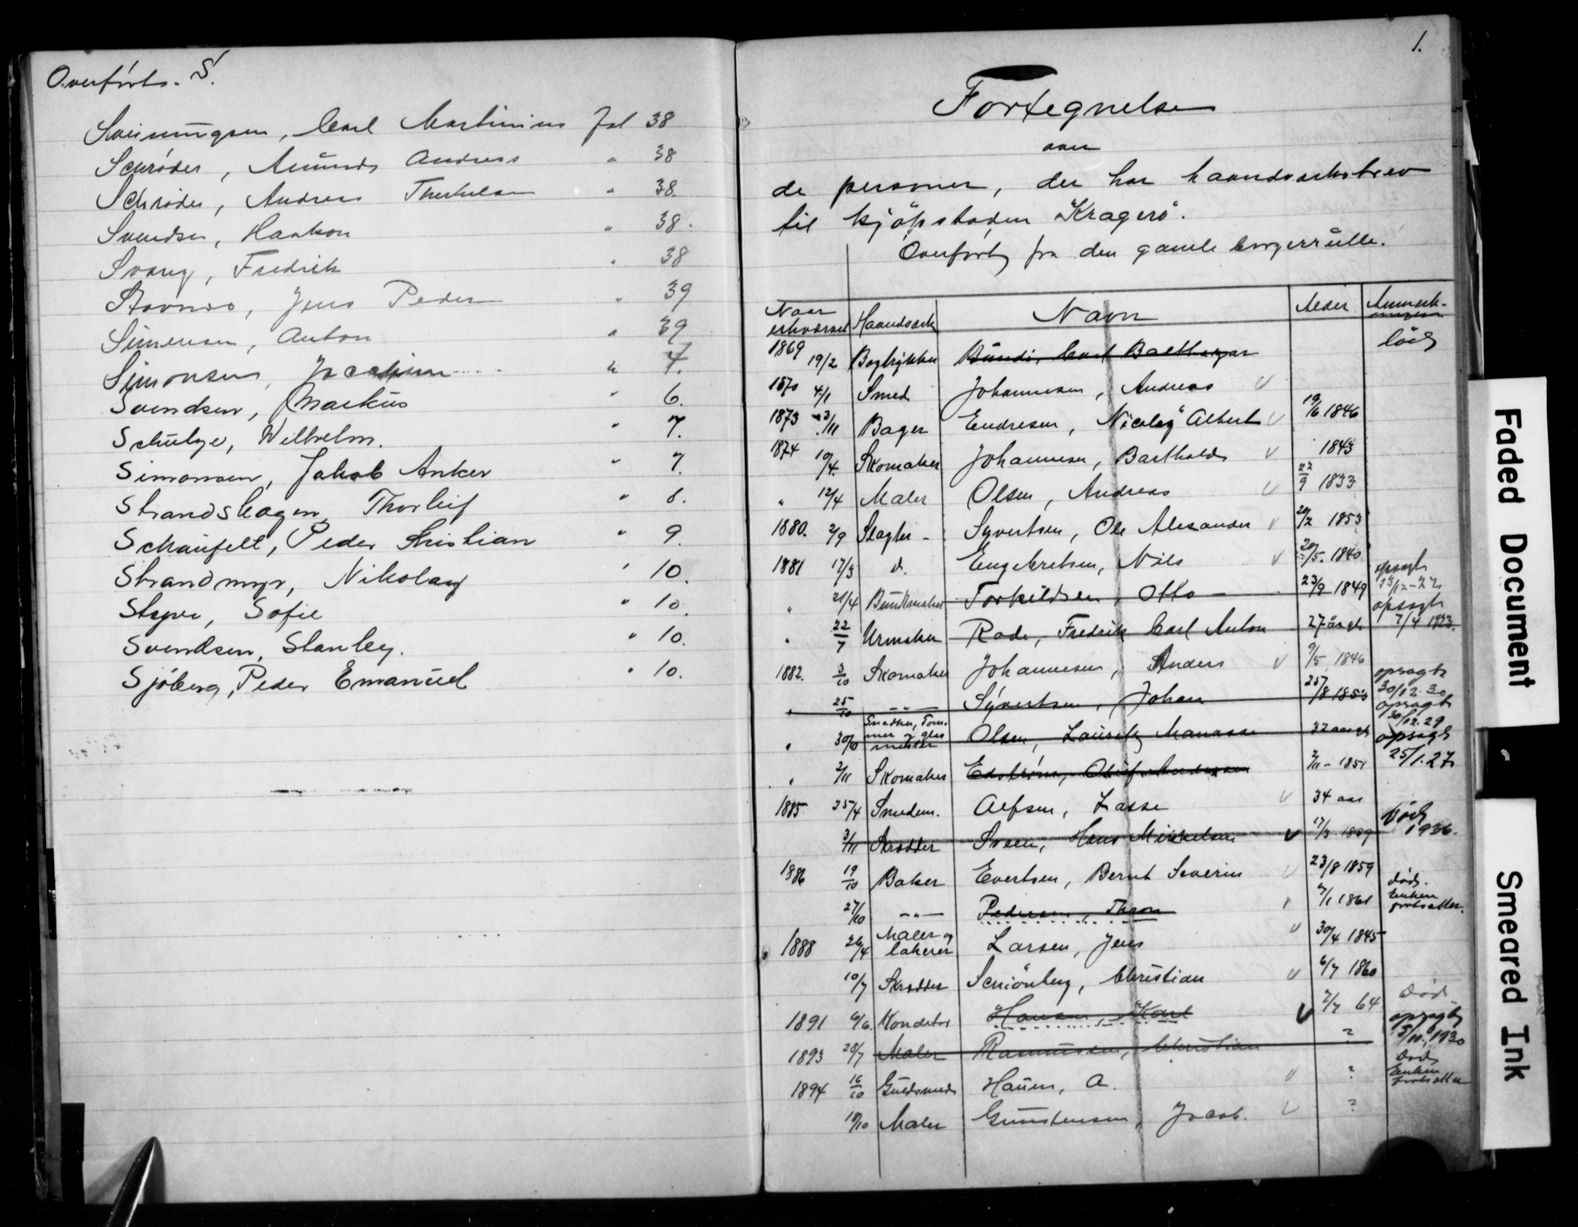 Overførte. S.
Sveinungsen, Carl Martinius fol 38
Schrøder, Amund Andreas " 38
Schrøder, Andreas Therkelsen " 38.
Svendsen, Haakon " 38.
Svang, Fredrik " 38
Stavnes, Jens Peder " 39
Simensen, Anton " 39
Simonsen, Joachim " 7.
Svendsen, Markus " 6.
Schulze, Wilhelm. " 7.
Simonsen, Jakob Anker " 7.
Strandskogen, Thorleif " 8.
Schaufell, Peder Kristian " 9.
Strandmyr, Nikolay " 10.
Styve, Sofie " 10.
Svendsen, Stanley. " 10.
Sjöberg, Peder Emanuel " 10.
1.
Fortegnelse
over
de personer, der har haandværksbrev
til kjöpstaden Kragerö.
Overført fra den gamle borgerrulle.
Naar erhvervet Haandværk Navn Alder Anmerkninger
1869 19/2 Bogtrykker Carl Balthazar död
1870 4/1 Smed Johannesen, Andreas v
1873 3/11 Bager Endresen, Nicolay Albert v 19/6 1846
1874 10/4 Skomaker Johannesen, Barthold v 1843
" 12/4 Maler Olsen, Andreas v 22/9 1833
1880. 2/9 Slagter - Syvertsen, Ole Alexander v 20/2 1853
1881 17/3 d. Engebretsen, Nils v 20/5. 1840
" 21/4 Buntmaker Torkildsen, Otto 23/9 1849 opsagt 13/12-22
" 22/7 Urmaker Rode, Fredrik Carl Anton 27 år gl. opsagt 7/4 1923.
1882. 3/10 Skomaker Johannesen, Anders v 9/5 1846
" 25/10 -"- Syvertsen, Johan 25/8 1853 opsagt 30/12.30
" 30/10 Snedker, Tømmer og glasmester Olsen, Lauritz Manasse 32 aar gl opsagt 30/12.29
" 2/11 Skomaker Edstrøm, Oluf Andersen 2/11 - 1851 opsagt 25/1.27
1885 25/4 Snedkm. Alfsen, Lasse v 34 aar
3/11 Skrædder Sveen, Hans Mikkelsen v 17/3 1859 död 1936.
1886 19/10 Baker Evertsen, Bernt Severin v 23/8 1859
27/10 -"- Pedersen, Thron v 2/1 1861 död. Enken fortsætter.
1888 26/4 Maler og lakerer Larsen, Jens v 30/4 1845
10/7 Skrædder Schiönberg, Christian v 6/7 1860
1891 6/6 Konditor Hansen, Karl v 2/7 64 Död
1893 28/7 Maler Rasmussen, Christian ? opsagt 5/10. 1930
1894 16/10 Guldsmed Hauen, A. v ? Död Enken fortsætter
18/10 Maler Gunstensen, Jacob. v ?
Faded Document
Smeared Ink